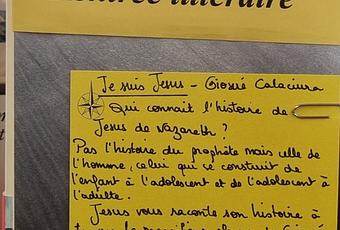 littéraire
Je suis Jesus - Giosuè Calaciura
Qui connait l'histoire de
Jesus de Nazareth ?
Pas l'histoire du prophète mais celle de
l'homme, celui qui se construit de
l'enfant à l'adolescent et de l'adolescent à
l'adulte.
Jesus vous raconte son histoire à